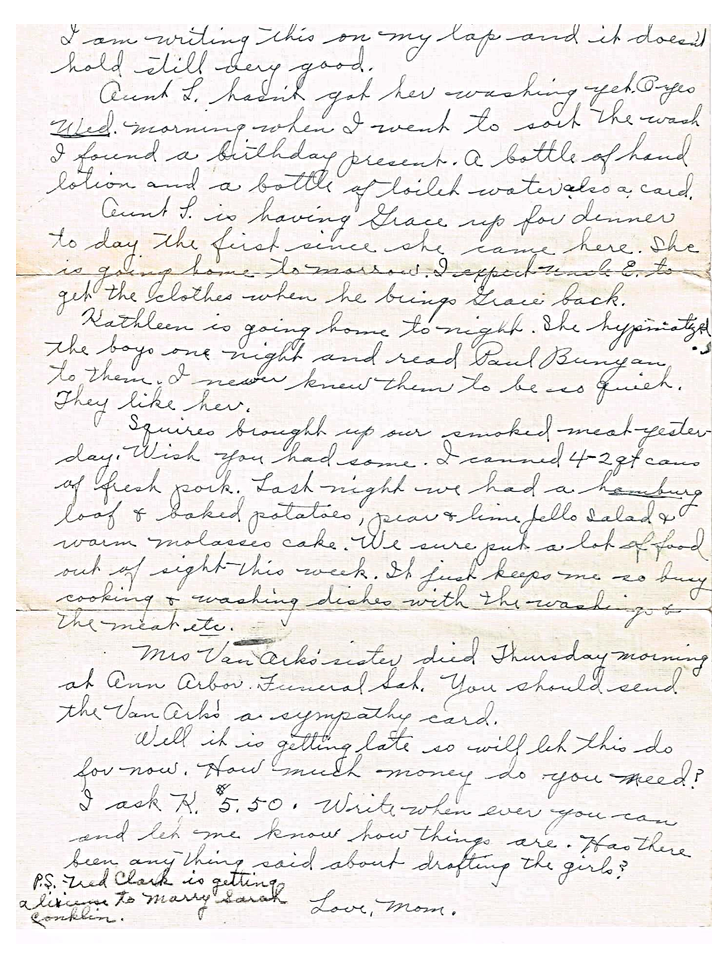 I am writing this on my lap and it doesn't
hold still very good.
Aunt L. hasn't got her washing yet. O yes
Wed. morning when I went to sort the wash
I found a birthday present. A bottle of hand
lotion and a bottle of toilet water also a card.
Aunt L. is having Grace up for dinner
to day the first since she came here. She
is going home to morrow. I expect Uncle E. to
get the clothes when he brings Grace back.
Kathleen is going home to night. She hypnotyzed
the boys one night and read Paul Bunyan
to them. I never knew them to be so quiet.
They like her.
Squires brought up our smoked meat yester-
day. Wish you had some. I canned 4-2 qt cans
of fresh pork. Last night we had a hamburg
loaf & baked potatoes, pear & lime jello salad &
warm molasses cake. We sure put a lot of food
out of sight this week. It just keeps me so busy
cooking & washing dishes with the washing &
the meat etc.
Mrs Van Ark's sister died Thursday morning
at Ann Arbor. Funeral Sat. You should send
the Van Ark's a sympathy card.
Well it is getting late so will let this do
for now. How much money do you need?
I ask K. $5.50. Write when ever you can
and let me know how things are. Has there
been any thing said about drafting the girls?
Love, Mom.
P.S. Fred Clark is getting
a license to marry Sarah
Conklin.